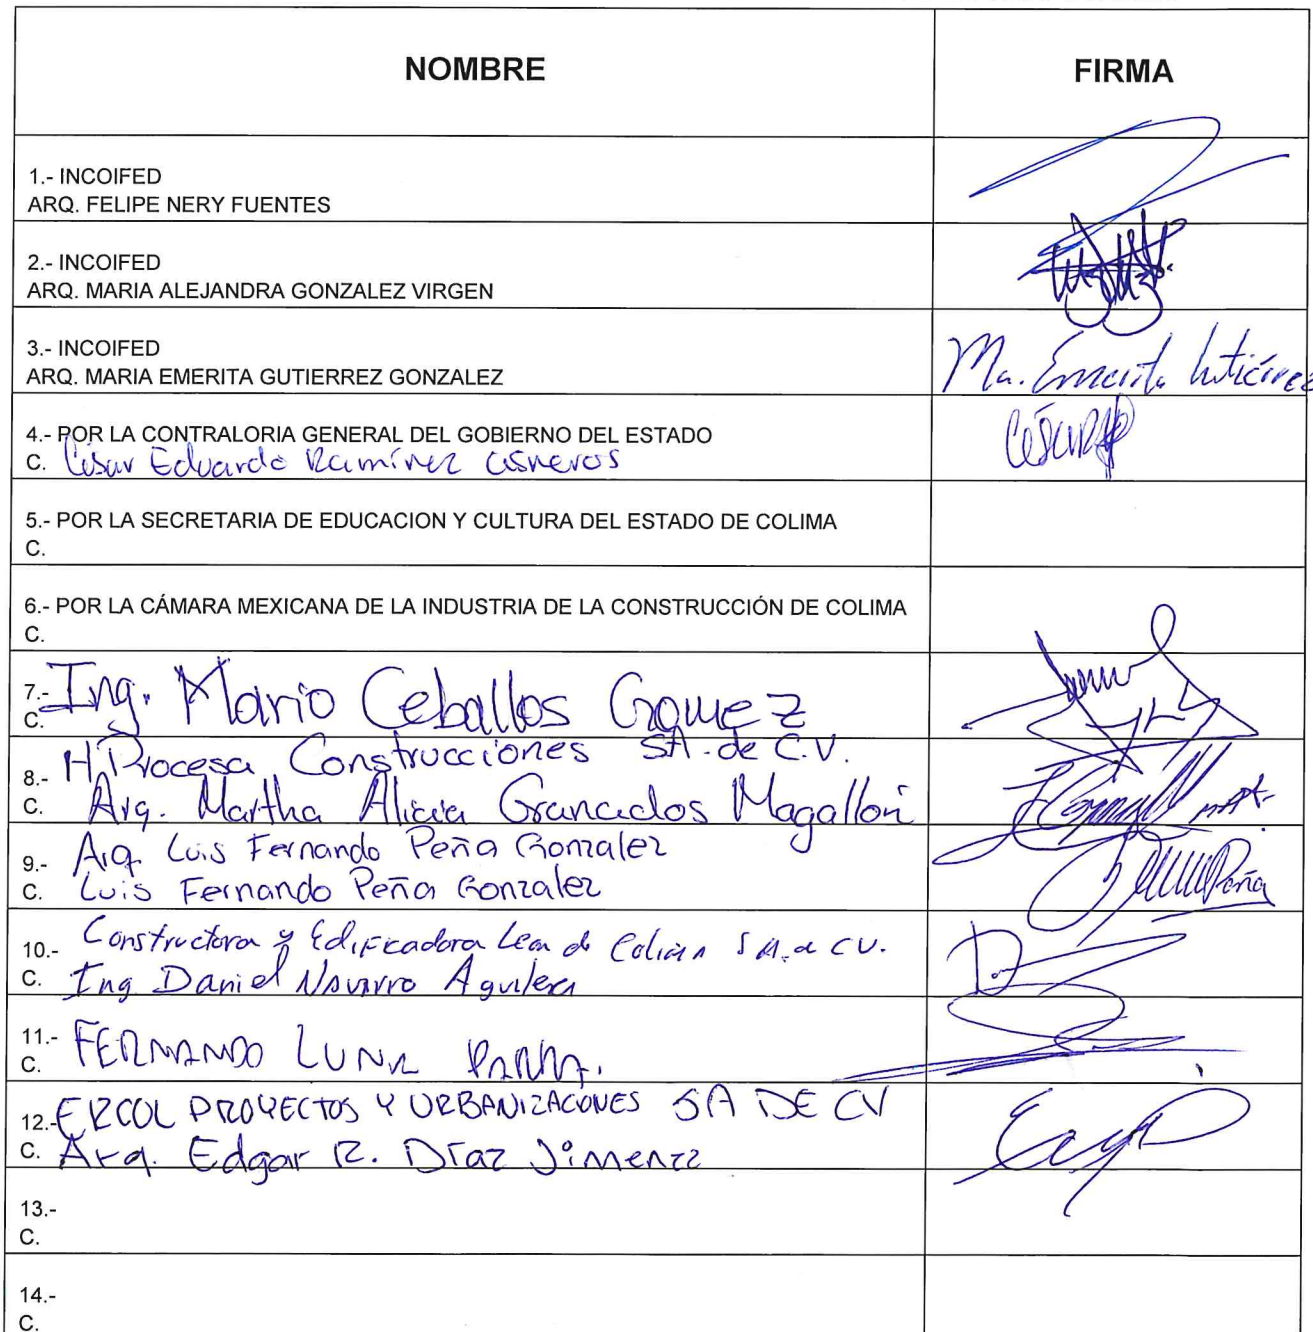 NOMBRE
FIRMA
1.- INCOIFED
ARQ. FELIPE NERY FUENTES
2.- INCOIFED
ARQ. MARIA ALEJANDRA GONZALEZ VIRGEN
3.- INCOIFED
ARQ. MARIA EMERITA GUTIERREZ GONZALEZ
Ma. Emerita Gutiérrez
4.- POR LA CONTRALORIA GENERAL DEL GOBIERNO DEL ESTADO
C. César Eduardo Ramírez Cisneros
5.- POR LA SECRETARIA DE EDUCACION Y CULTURA DEL ESTADO DE COLIMA
C.
6.- POR LA CÁMARA MEXICANA DE LA INDUSTRIA DE LA CONSTRUCCIÓN DE COLIMA
C.
7.- Ing. Mario Ceballos Gomez
C.
8.- Procesa Construcciones SA. de C.V.
C. Arq. Martha Alicia Granados Magallón
9.- Arq. Luis Fernando Peña Gonzalez
C. Luis Fernando Peña Gonzalez
Peña
10.- Constructora y Edificadora de Colima S.A. de C.V.
C. Ing Daniel Navarro Aguilera
11.- FERNANDO LUNA PARRA.
C.
12.- ERCOL PROYECTOS Y URBANIZACIONES SA DE CV
C. Arq. Edgar R. Díaz Jimenez
13.-
C.
14.-
C.